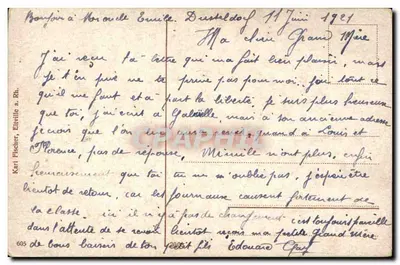 Bonjour à mon oncle Emile. Dusseldorf 11 Juin 1921
Ma chère Grand Mère
J'ai reçu ta lettre qui m'a fait bien plaisir, mais
je t'en prie ne te prive pas pour moi. j'ai tout ce
qu'il me faut et à part la liberté, je suis plus heureux
que toi, j'ai écrit à Gabrielle, mais à son ancienne adresse
je crois que l'on quand à Louis et
Florence, pas de réponse, Mimile n'ont plus, enfin
heureusement que toi tu ne m'oublie pas, j'espère être
bientôt de retour, car les journaux causent fortement de
la classe. ici il n'y a pas de changement c'est toujours pareille
dans l'attente de se revoir bientôt reçois ma petite Grand Mère
de bons baisers de ton petit fils Edouard
Karl Fischer, Eltville a. Rh.
605